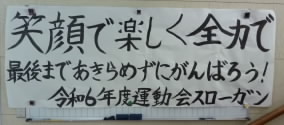 笑顔で楽しく全力で
最後まであきらめずにがんばろう!
令和6年度運動会スローガン